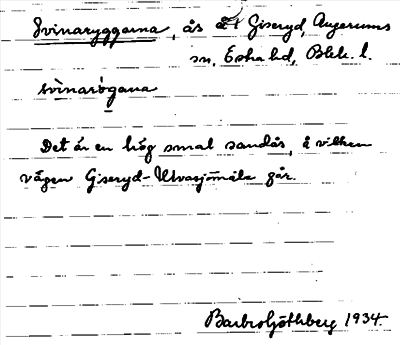 Svinaryggarna, ås å Giseryd, Augerums
sn, Östra hd, Blek. l.
svìnarö́gana
Det är en hög smal sandås, å vilken
vägen Giseryd-Ulvasjömåla går.
Barbro Göthberg 1934.